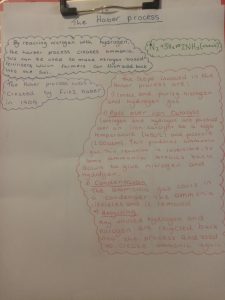 The Haber process
By reacting nitrogen with hydrogen,
the Haber process creates ammonia.
This can be used to make nitrogen based
fertilisers which farmers can add back
into the soil.
The Haber process was
created by Fritz Haber
in 1909
The steps involved in the
Haber process are:
and purify nitrogen
and hydrogen gas
Pass over iron catalyst
Hydrogen and nitrogen are passed
over an iron catalyst at a high
temperature and pressure
This produces ammonia
gas. This reaction is reversible so
some ammonia breaks back
down to give nitrogen and
hydrogen.
Condensation
The ammonia gas cools in
a condenser. The ammonia
liquefies and is removed
Recycling
Any unused hydrogen and
nitrogen are recycled back
into the process and used
to create ammonia again